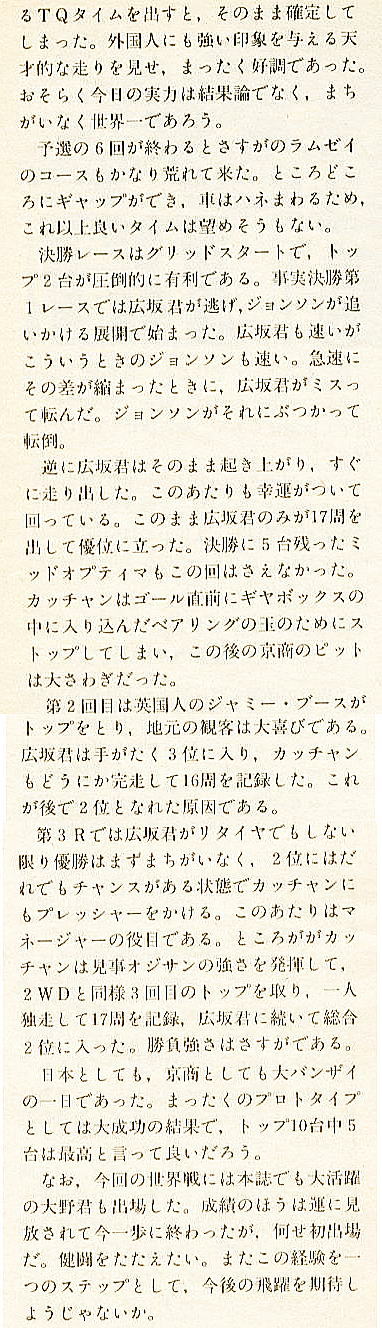 るＴＱタイムを出すと，そのまま確定して
しまった。外国人にも強い印象を与える天
才的な走りを見せ，まったく好調であった。
おそらく今日の実力は結果論でなく，まち
がいなく世界一であろう。
予選の６回が終わるとさすがのラムゼイ
のコースもかなり荒れて来た。ところどこ
ろにギャップができ，車はハネまわるため，
これ以上良いタイムは望めそうもない。
決勝レースはグリッドスタートで，トッ
プ２台が圧倒的に有利である。事実決勝第
１レースでは広坂君が逃げ，ジョンソンが追
いかける展開で始まった。広坂君も速いが
こういうときのジョンソンも速い。急速に
その差が縮まったときに，広坂君がミスっ
て転んだ。ジョンソンがそれにぶつかって
転倒。
逆に広坂君はそのまま起き上がり，すぐ
に走り出した。このあたりも幸運がついて
回っている。このまま広坂君のみが17周を
出して優位に立った。決勝に５台残ったミ
ッドオプティマもこの回はさえなかった。
カッチャンはゴール直前にギヤボックスの
中に入り込んだベアリングの玉のためにス
トップしてしまい，この後の京商のピット
は大さわぎだった。
第２回目は英国人のジャミー・ブースが
トップをとり，地元の観客は大喜びである。
広坂君は手がたく３位に入り，カッチャン
もどうにか完走して16周を記録した。これ
が後で２位となれた原因である。
第３Ｒでは広坂君がリタイヤでもしない
限り優勝はまずまちがいなく，２位にはだ
れでもチャンスがある状態でカッチャンに
もプレッシャーをかける。このあたりはマ
ネージャーの役目である。ところががカッ
チャンは見事オジサンの強さを発揮して，
２ＷＤと同様３回目のトップを取り，一人
独走して17周を記録，広坂君に続いて総合
２位に入った。勝負強さはさすがである。
日本としても，京商としても大バンザイ
の一日であった。まったくのプロトタイプ
としては大成功の結果で，トップ10台中５
台は最高と言って良いだろう。
なお，今回の世界戦には本誌でも大活躍
の大野君も出場した。成績のほうは運に見
放されて今一歩に終わったが，何せ初出場
だ。健闘をたたえたい。またこの経験を一
つのステップとして，今後の飛躍を期待し
ようじゃないか。